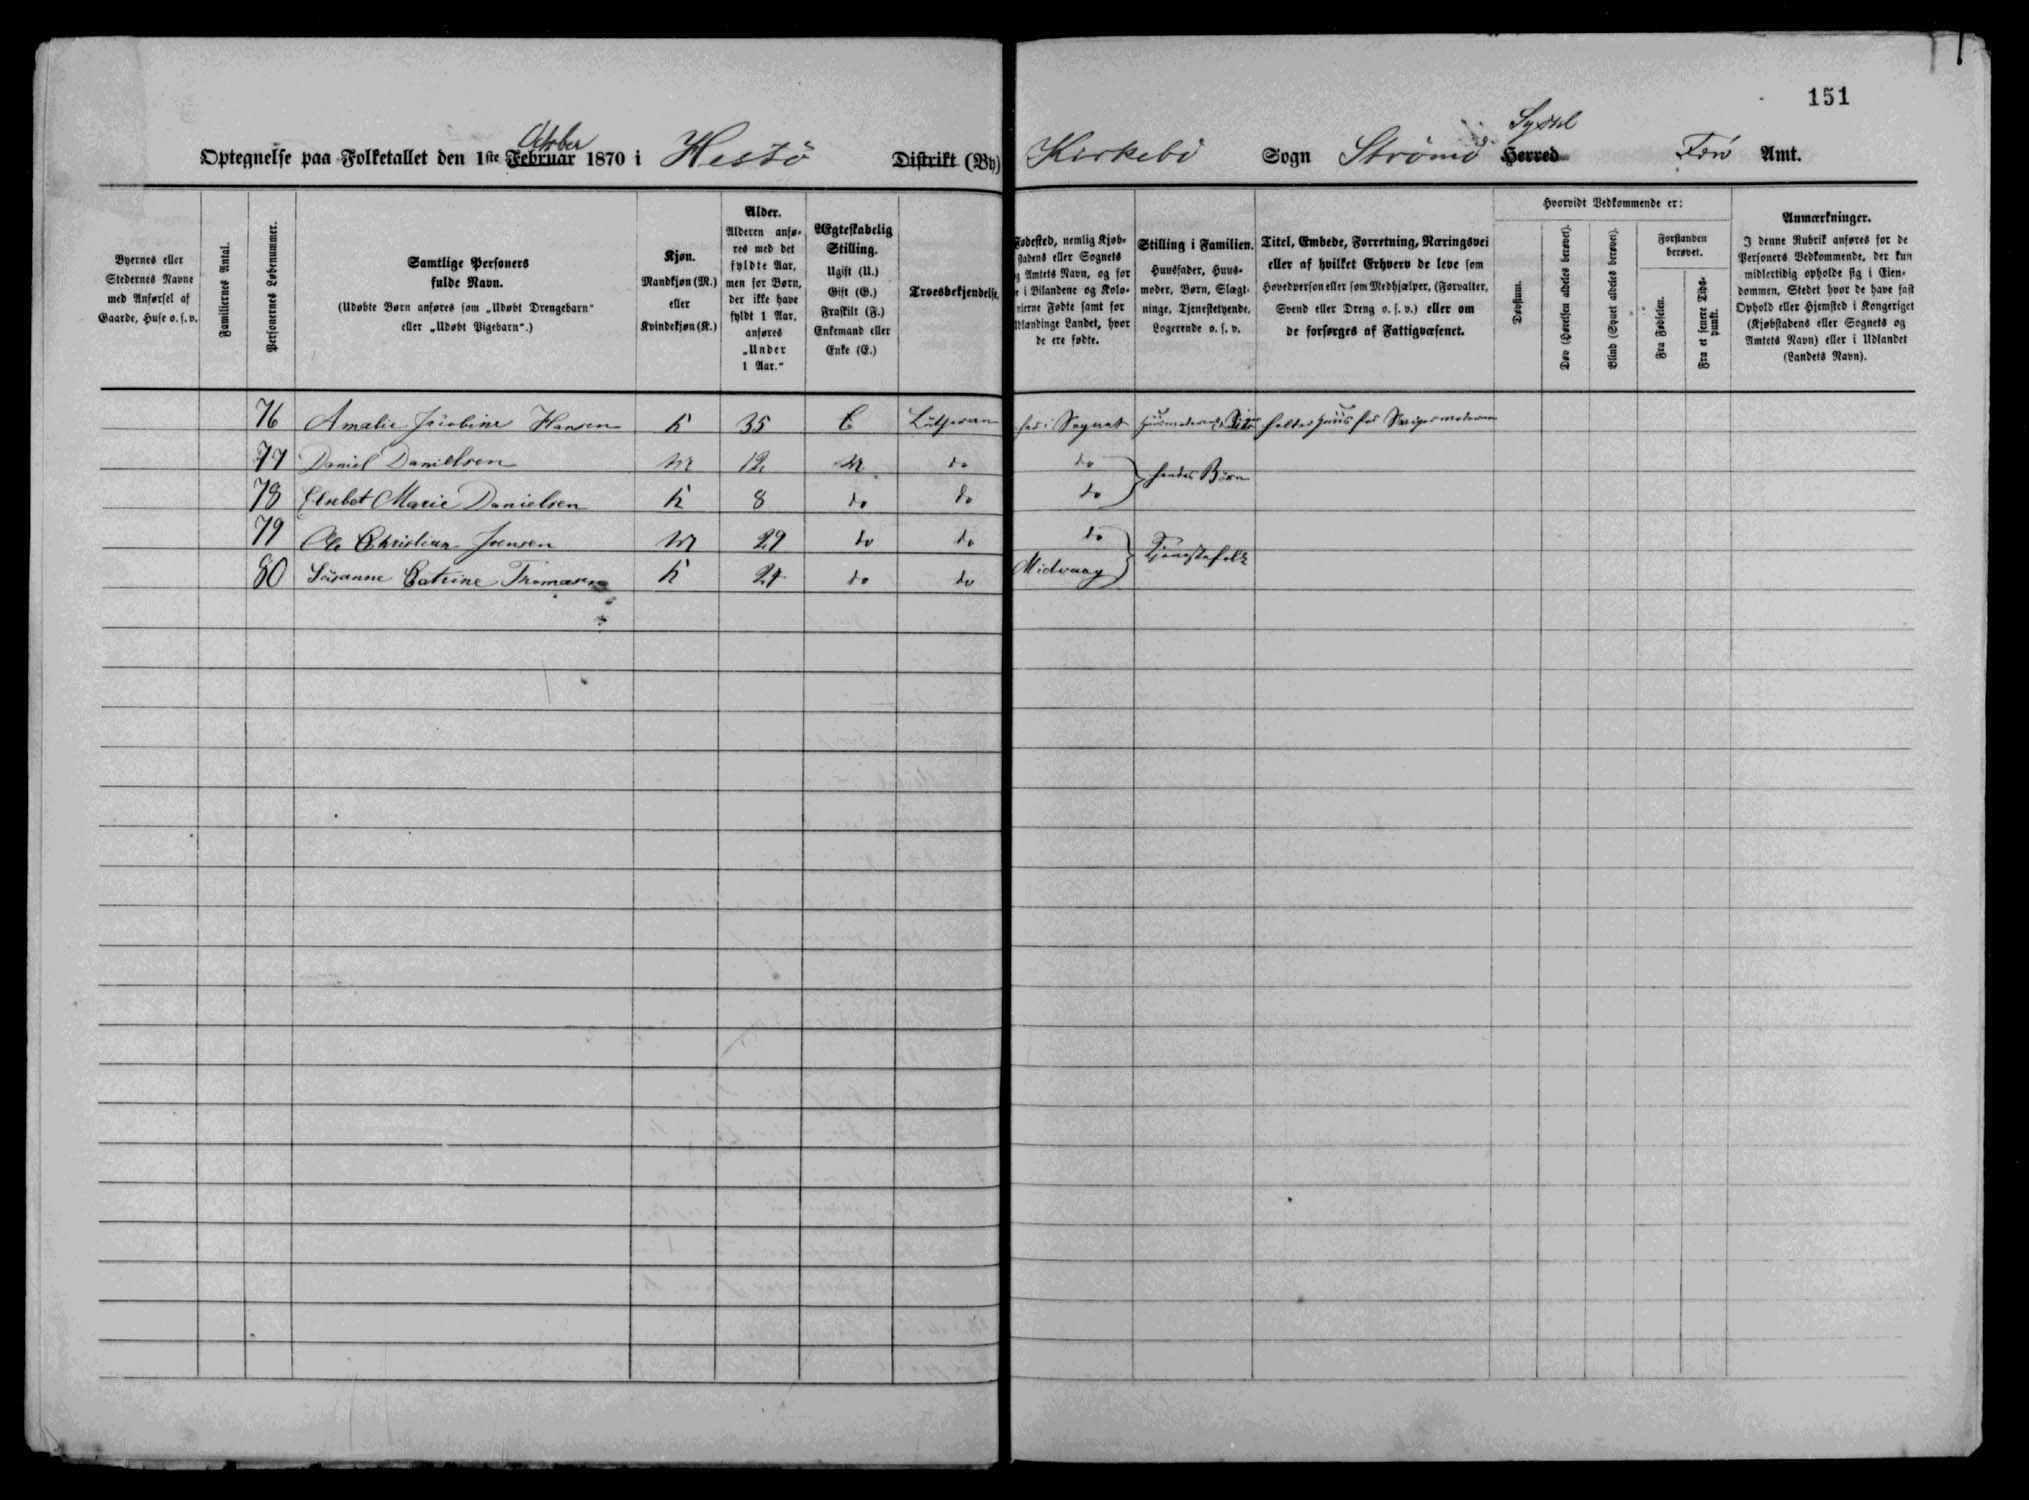 151
Optegnelse paa Folketallet den 1ste Februar October 1870 i Hestö Distrikt (By) Kirkebö Sogn Strömö Herred Syssel Færö Amt.
Byernes eller Stedernes Navne med Anførsel af Gaarde, Huse o. s. v.
Familiernes Antal.
Personernes Løbenummer.
Samtlige Personers
fulde Navn.
(Udøbte Børn anføres som „Udøbt Drengebarn“
eller „Udøbt Pigebarn“.)
Kjøn.
Mandkjøn (M.)
eller
Kvindekjøn (K.)
Alder.
Alderen anfø-
res med det
fyldte Aar,
men for Børn,
der ikke have
fyldt 1 Aar,
anføres
„Under
1 Aar.“
Ægteskabelig
Stilling.
Ugift (U.)
Gift (G.)
Fraskilt (F.)
Enkemand eller
Enke (E.)
Troesbekjendelse.
Fødested, nemlig Kjøb-
stadens eller Sognets
og Amtets Navn, og for
de i Bilandene og Kolo-
nierne Fødte samt for
Udlændinge Landet, hvor
de ere fødte.
Stilling i Familien.
Huusfader, Huus-
moder, Børn, Slægt-
ninge, Tjenestetyende,
Logerende o. s. v.
Titel, Embede, Forretning, Næringsvei
eller af hvilket Erhverv de leve som
Hovedperson eller som Medhjælper, (Forvalter,
Svend eller Dreng o. s. v.) eller om
de forsørges af Fattigvæsenet.
Hvorvidt Vedkommende er:
Døvstum.
Døv (Hørelsen aldeles berøvet).
Blind (Synet aldeles berøvet).
Forstanden
berøvet.
Fra Fødselen.
Fra et senere Tids-
punkt.
Anmærkninger.
I denne Rubrik anføres for de
Personers Vedkommende, der kun
midlertidig opholde sig i Eien-
dommen, Stedet hvor de have fast
Ophold eller Hjemsted i Kongeriget
(Kjøbstadens eller Sognets og
Amtets Navn) eller i Udlandet
(Landets Navn).
76 Amalie Jacobine Hansen K 35 E Luthersan her i Sognet holder Huus for Svigermoderen
77 Daniel Danielsen M 12 U do do hendes Börn
78 Elsebet Marie Danielsen K 8 do do do
79 Ole Christian Joensen M 29 do do do Tjenestefolk
80 Susanne Catrine Thomasen K 24 do do Midvaag